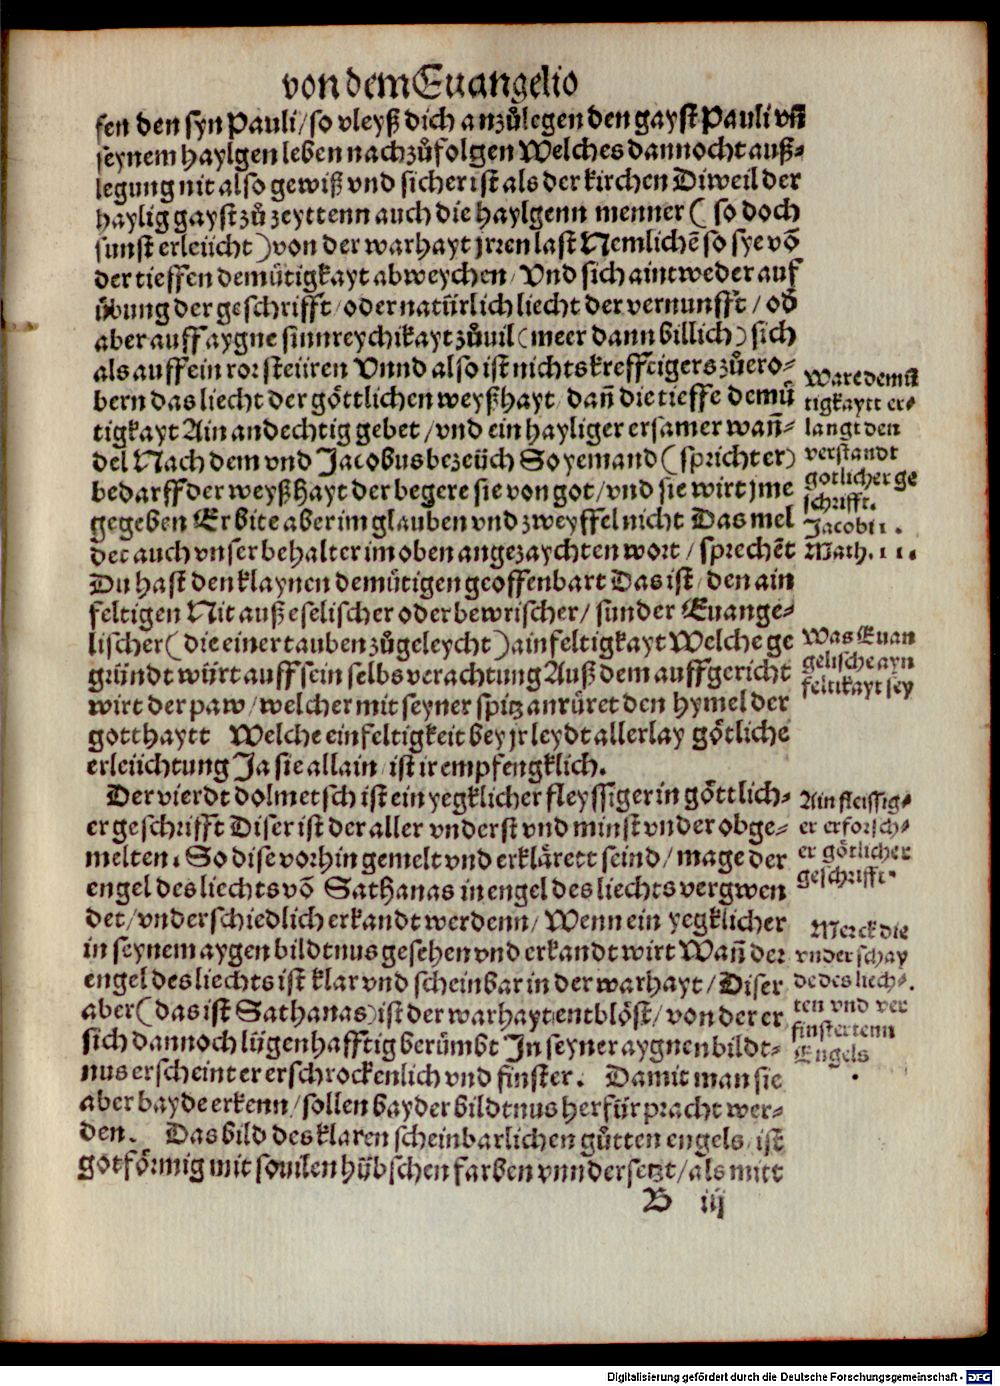 von dem Euangelio
fen den syn Pauli/so vleyß dich anzůlegen den gayst Pauli vñ
seynem haylgen leben nachzůfolgen Welches dannocht auß-
legung nit also gewiß vnd sicher ist als der kirchen Diweil der
haylig gayst zů zeyttenn auch die haylgenn menner ( so doch
sunst erleücht ) von der warhayt jrren last Nemlichẽ so sye võ
der tieffen demütigkayt abweychen/ Vnd sich aintweder auf
übung der geschrifft/ oder natürlich liecht der vernunfft / od
aber auff aygne sinnreychikayt zůuil (meer dann billich) sich
als auff ein ror steüren Vnnd also ist nichts krefftigers zůero-
bern das liecht der göttlichen weyßhayt/ dañ die tieffe demü
tigkayt Ain andechtig gebet / vnd ein hayliger ersamer wañ-
del Nach dem vnd Jacobus bezeüch So yemand ( spricht er)
bedarff der weyßhayt der begere sie von got/ vnd sie wirt jme
gegeben Er bite aber im glauben vnd zweyffel nicht Das mel
det auch vnser behalter im oben angezaychten wort / sprechẽt
Du hast den klaynen demütigen geoffenbart Das ist / den ain
feltigen Nit auß eselischer oder bewrischer/ sunder Euange-
lischer ( die einer tauben zůgeleycht ) ainfeltigkayt Welche ge
gründt würt auff sein selbs verachtung Auß dem auffgericht
wirt der paw / welcher mit seyner spitz anrüret den hymel der
gotthaytt Welche einfeltigkeit bey jr leydt allerlay götliche
erleüchtung Ja sie allain/ ist ir empfengklich.
Der vierdt dolmetsch ist ein yegklicher fleyssiger in göttlich-
er geschrifft Diser ist der aller vnderst vnd minst vnder obge-
melten. So dise vorhin gemelt vnd erklärett seind/ mage der
engel des liechts võ Sathanas in engel des liechts vergwen
det/ vnderschiedlich erkandt werdenn/ Wenn ein yegklicher
in seynem aygen bildtnus gesehen vnd erkandt wirt Wañ der
engel des liechts ist klar vnd scheinbar in der warhayt/ Diser
aber ( das ist Sathanas) ist der warhayt entblöst/ von der er
sich dannoch lügenhafftig berümbt In seyner aygnen bildt-
nus erscheint er erschrockenlich vnd finster. Damit man sie
aber bayde erkenn/ sollen bayder bildtnus herfür pracht wer-
den. Das bild des klaren scheinbarlichen gůtten engels/ ist
gotförmig mit souilen hübschen farben vnndersetzt/ als mitt
B iij
Ware demü
tigkaytt er-
langt den
verstandt
gotlicher ge
schrifft.
Jacobi 1.
Math. 11.
Was Euan
gelische ayn
feltikayt sey
Ain fleissig-
er erforsch-
er götlicher
geschrifft.
Merck die
vnderschay
de des liech-
ten vnd ver
finstertenn
Engels
Digitalisierung gefördert durch die Deutsche Forschungsgemeinschaft - DFG